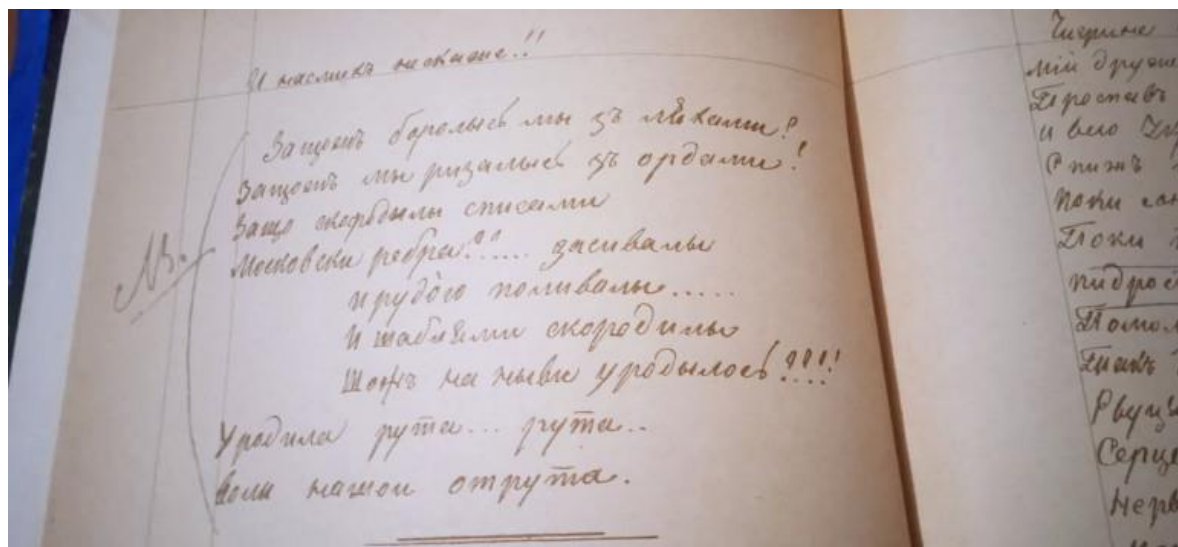 И насликъ нескаже!!
Защожъ боролысь мы зъ ляхами?
Защожъ мы ризалысь зъ ордами!
Защо скородылы списами
Московски ребра??..... засивалы
И рудою поливалы.....
И шаблями скородилы
Шожъ на ныви уродылось???!
NB.
Уродила рута... рута..
Воли нашои отрута.
Чигрине
мій друже
Проспавъ
и всю
Поки
Поки
Серце